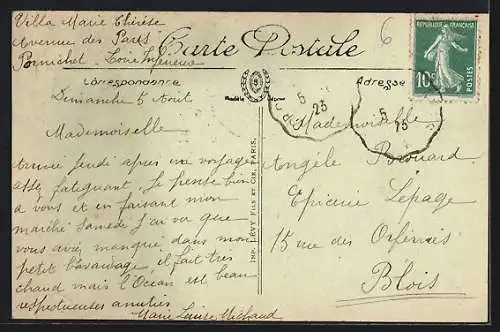 Villa Marie Thérèse
Avenue des Parcs
Pornichet Loire Inférieure
Carte Postale
Correspondance
Adresse
RÉPUBLIQUE FRANÇAISE
10c
POSTES
5
23
5
23
6
Dimanche 5 Août
Mademoiselle
Arrivée jeudi après un voyage
assez fatiguant. Je pense bien
à vous et en faisant mon
marché Samedi j'ai vu que
vous avez manqué dans mon
petit bavardage il fait très
chaud mais l'Océan est beau
respectueuses amitiés
Marie Louise Michaud
IMP. LÉVY FILS ET CIE, PARIS.
Mademoiselle
Angèle Brouard
Epicerie Lepage
15 rue des Orfèvres
Blois